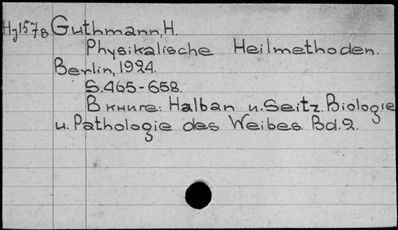 Hy1578 Guthmann, H.
Physikalische Heilmethoden.
Berlin, 1924.
S.465-658.
В книге: Halban u. Seitz. Biologie
u. Pathologie des Weibes. Bd.2.